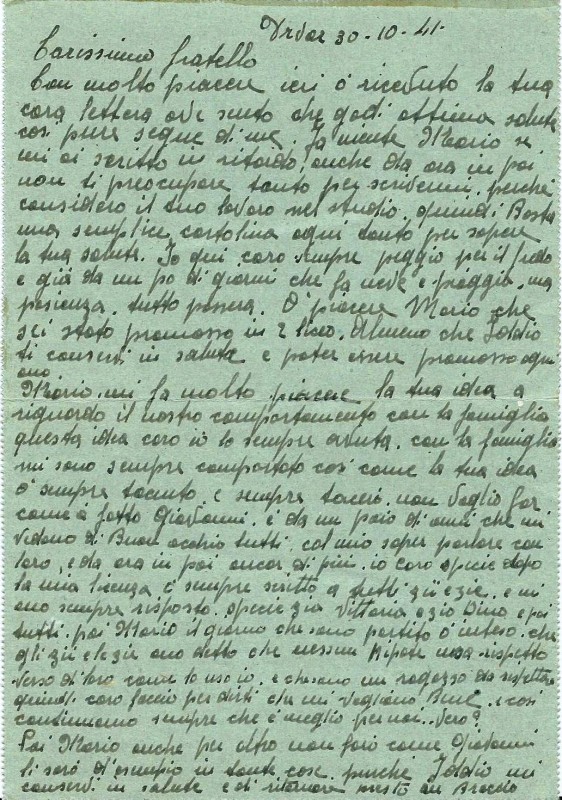 Drvar 30-10-41-
Carissimo fratello
Con molto piacere ieri ó ricevuto la tua
cara lettera ove sento che godi ottima salute
cosi pure segue di me. fa niente Mario se
mi ai scritto in ritardo, anche da ora in poi
non ti preocupare tanto per scrivermi, perché
considero il tuo lavoro nel studio, quindi Basta
una semplice cartolina ogni tanto per sapere
la tua salute. Io qui caro sempre peggio per il freddo
e giá da un po di giorni che fa neve e pioggia, ma
pasienza, tutto passera. O' piacere Mario che
sei stato promosso in 2 liceo. Almeno che Iddio
ti conservi in salute e poter essere promosso ogni
ano
Mario, mi fa molto piacere la tua idea a
riguardo il nostro comportamento con la famiglia
questa idea caro io lo sempre avuta, con la famiglia
mi sono sempre comportato cosi come la tua idea
o' sempre taciuto, e sempre taceró, non voglio far
come á fatto Giovanni, é da un paio di anni che mi
vedono di Buon occhio tutti, col mio saper parlare con
loro, e da ora in poi ancor di piú, io caro specie dopo
la mia licenza o' sempre scritto a tutti zii e zie, e mi
ano sempre risposto, specie zia Vittoria e zio Dino e poi
tutti, poi Mario il giorno che sono partito ó inteso, che
gli zii e le zie ano detto che nessun Nipote usa rispetto
verso di loro come lo uso io, e che sono un ragazzo da rispettare
quindi caro faccio per dirti che mi vogliono Bene, e cosi
continuiamo sempre che é meglio per noi.. Vero?
Poi Mario anche per altro non faró come Giovanni
ti saró d'esempio in tante cose, purché Iddio mi
conservi in salute e di ritornare presto